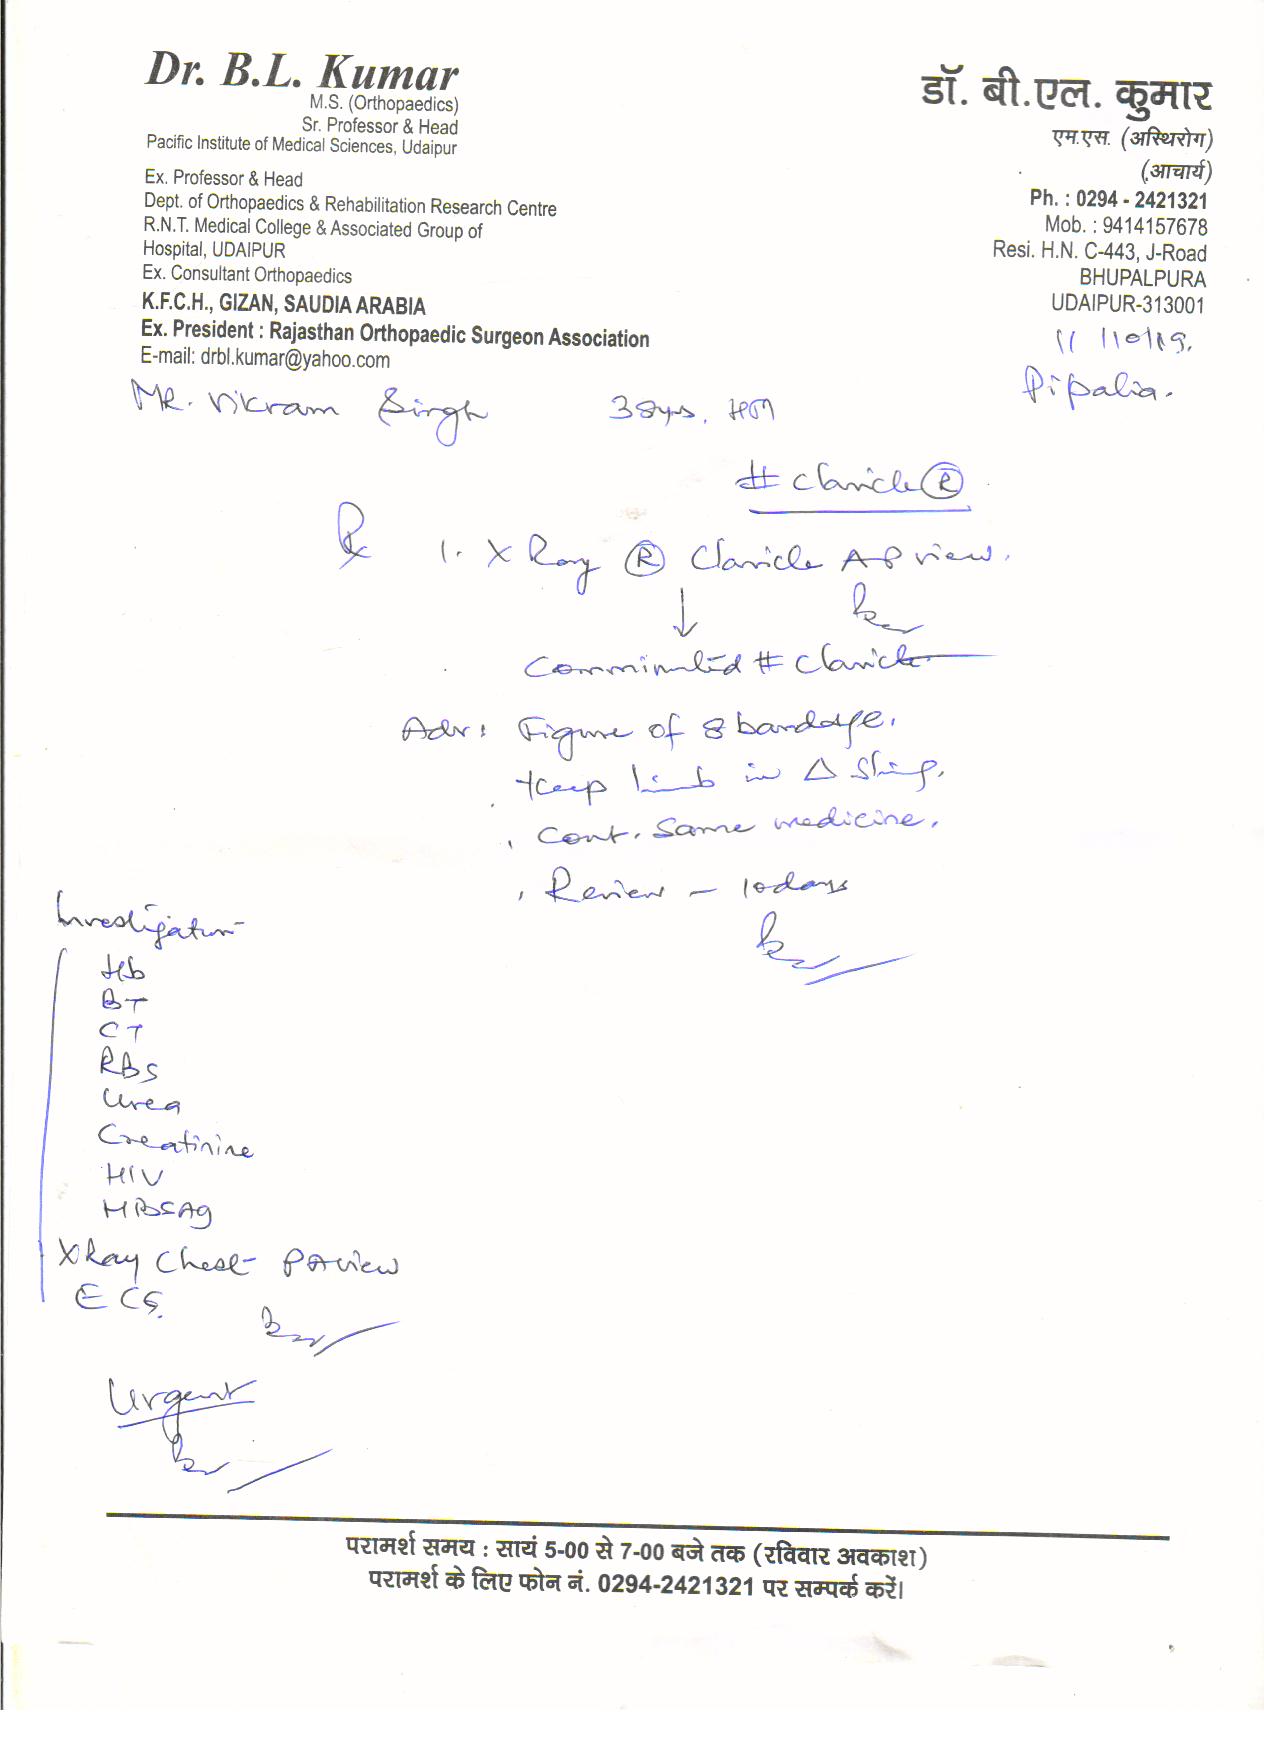 Dr. B.L. Kumar
M.S. (Orthopaedics)
Sr. Professor & Head
Pacific Institute of Medical Sciences, Udaipur
Ex. Professor & Head
Dept. of Orthopaedics & Rehabilitation Research Centre
R.N.T. Medical College & Associated Group of
Hospital, UDAIPUR
Ex. Consultant Orthopaedics
K.F.C.H., GIZAN, SAUDIA ARABIA
Ex. President : Rajasthan Orthopaedic Surgeon Association
E-mail: drbl.kumar@yahoo.com
डॉ. बी.एल. कुमार
एम.एस. (अस्थिरोग)
(आचार्य)
Ph. : 0294 - 2421321
Mob. : 9414157678
Resi. H.N. C-443, J-Road
BHUPALPURA
UDAIPUR-313001
Pipalia.
Mr. Vikram Singh 38yrs,
# clavicle Ⓡ
℞ 1. X Ray Ⓡ Clavicle AP view.
↓
Comminuted # clavicle
Adv: Figure of 8 bandage.
Keep limb in Δ Sling.
Cont. Same medicine.
Review - 10days
Investigation
Hb
BT
CT
RBS
Urea
Creatinine
HIV
HBSAg
X Ray Chest PA view
ECG.
Urgent
परामर्श समय : सायं 5-00 से 7-00 बजे तक (रविवार अवकाश)
परामर्श के लिए फोन नं. 0294-2421321 पर सम्पर्क करें।